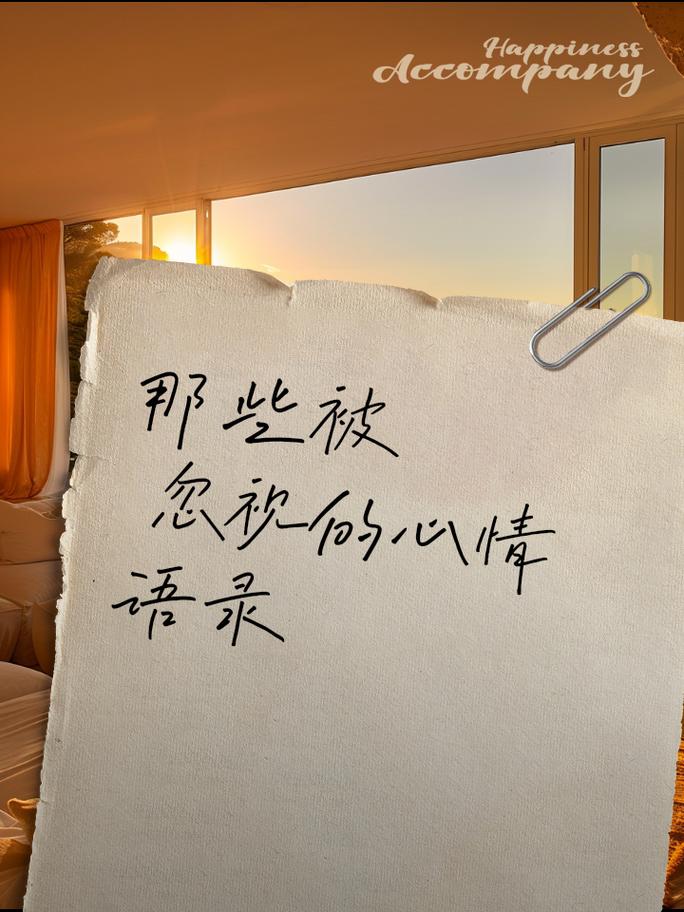 Happiness
Accompany
那些被
忽视的心情
语录